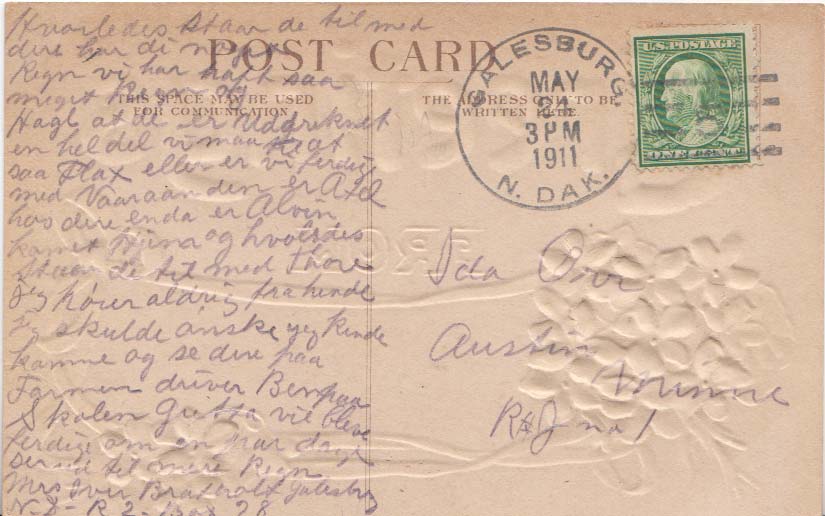 Hvorledes Staar de til med
dere har di meget
POST CARD
Regn vi har haft saa
meget Regn og
THIS SPACE MAY BE USED
FOR COMMUNICATION
THE ADDRESS ONLY TO BE
WRITTEN HERE.
Hagl at de er uddreknet
en hel del vi maa
saa Flax eller er vi ferdig
med Vaaraanden er
hos dere enda er Alvin
komet og hvorledes
Staar de til med Thore
Jeg hører aldrig fra hende
Jeg skulde ønske jeg kunde
komme og se dere paa
Farmen driver Ben paa
Skolen vil bleve
ferdige om en par dage
ser ud til mere Regn
Mrs Iver Galesburg
N-D- R 2- Box 28
GALESBURG,
MAY
24
3 PM
1911
N. DAK.
U.S. POSTAGE
ONE CENT
Ida
Austin
Minne
no 1